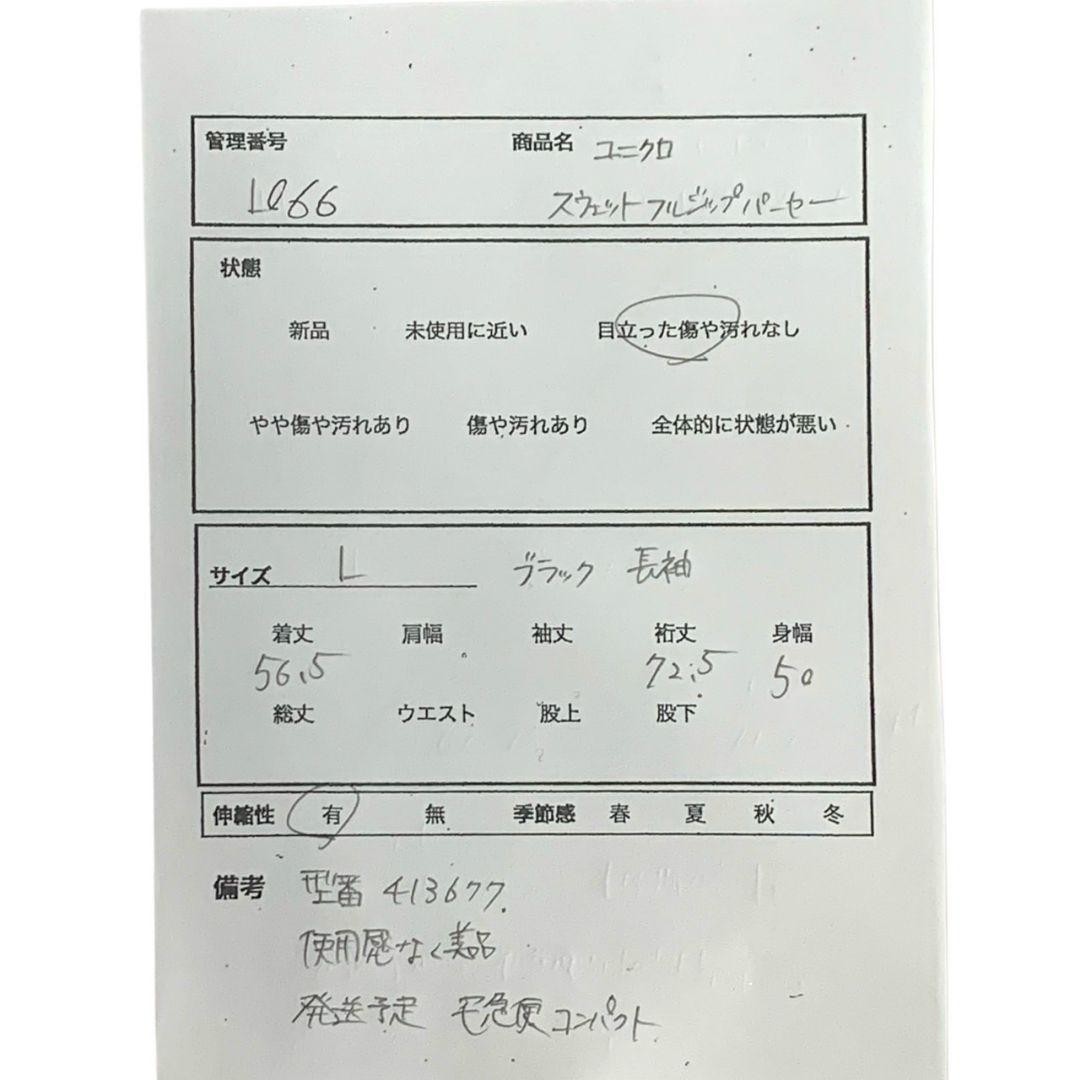 管理番号 商品名 ユニクロ
L066 スウェットフルジップパーセー
状態
新品 未使用に近い 目立った傷や汚れなし
やや傷や汚れあり 傷や汚れあり 全体的に状態が悪い
サイズ L ブラック 長袖
着丈 肩幅 袖丈 裄丈 身幅
56.5 72.5 50
総丈 ウエスト 股上 股下
伸縮性 有 無 季節感 春 夏 秋 冬
備考 型番 413677.
使用感なく美品
発送予定 宅急便コンパクト